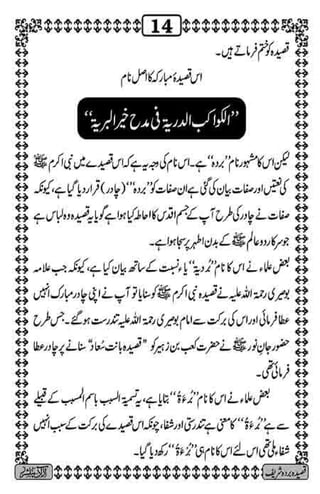 14
قصیدہ کو ختم فرماتے ہیں۔
اس قصیدۂ مبارکہ کا اصل نام
”الکواکب الدریۃ فی مدح خیر البریۃ“
لیکن اس کا مشہور نام ”بردہ“ ہے۔ اس نام کی وجہ یہ ہے کہ اس قصیدے میں نبی اکرم ﷺ
کی نعتیں اور صفات بیان کی گئی ہے ان صفات کو ”بردہ“ (چادر) قرار دیا گیا ہے، کیونکہ
صفات نے چادر کی طرح آپ کے جسم اقدس کا احاطہ کیا ہوا ہے گویا یہ قصیدہ وہ لباس ہے
جو سرکار دو عالم ﷺ کے بدن اطہر پر سجا ہوا ہے۔
بعض علماء نے اس کا نام ”بُردِیَۃ“ یاءِ نسبت کے ساتھ بیان کیا ہے، کیونکہ جب علامہ
بوصیری رحمۃ اللہ علیہ نے قصیدہ نبی اکرم ﷺ کو سنایا تو آپ نے اپنی چادر مبارک انہیں
عطا فرمائی اور اس کی برکت سے امام بوصیری رحمۃ اللہ علیہ تندرست ہو گئے۔ جس طرح
حضور جانِ نور ﷺ نے حضرت کعب بن زہیر کو ”قصیدہ بانت سُعاد“ سنانے پر چادر عطا
فرمائی تھی۔
بعض علماء نے اس کا نام ”بُرءَۃُ“ بتایا ہے، یہ تسمیۃ السبب باسم المسبب کے قبیلے
سے ہے ”بُرءَۃُ“ کا معنی ہے تندرستی اور شفاء، چونکہ اس قصیدے کی برکت کے سبب انہیں
شفاء ملی تھی اس لئے اس کا نام ہی ”بُرءَۃُ“ رکھ دیا گیا۔
قصیدہ بردہ شریف